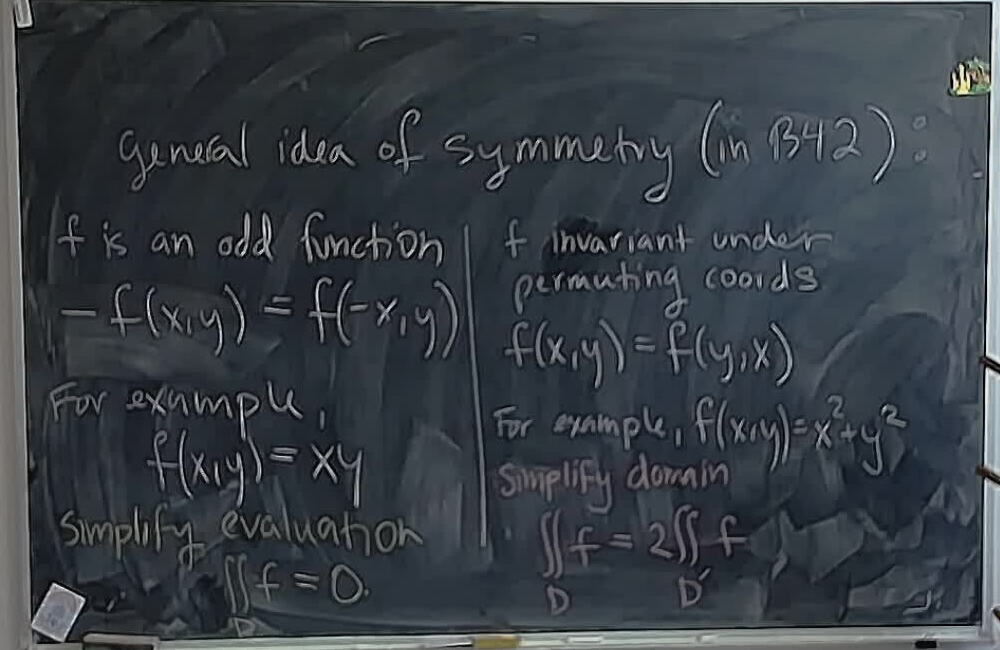 general idea of symmetry (in B42):
f is an odd function
- f(x,y) = f(-x,y)
For example,
f(x,y) = xy
Simplify evaluation
∬f = 0.
D
f invariant under
permuting coords
f(x,y) = f(y,x)
For example, f(x,y)=x²+y²
Simplify domain
∬f = 2∬f
D D'